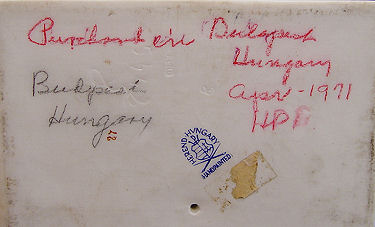 Purchased in Budapest
Hungary
Apr-1971
HPD
Budapest
Hungary
27
HEREND HUNGARY
HANDPAINTED